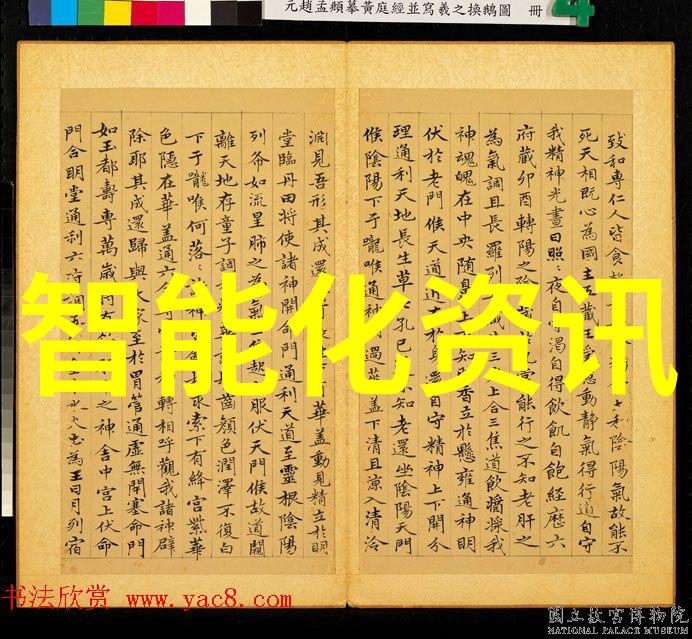 元趙孟頫摹黃庭經並寫羲之換鵝圖 冊
致和專仁人皆食 七和陰陽氣故能不
死天相既心為國主五藏王 動靜氣得行道自守
我精神光晝日照〻夜自守渴自得飲飢自飽經歷六
府藏卯酉轉陽之陰 能行之不知老肝之
為氣調且長羅列 三 上合三焦道飲醬漿我
神魂魄在中央随鼻上 知 香立於懸雍通神明
伏於老門候天道近在於身還自守精神上下開分
理通利天地長生草七孔已 不知老還坐陰陽天門
候陰陽下于嚨喉通神 過華蓋下清且涼入清泠
淵見吾形其成還 華蓋動見精立於明
堂臨丹田將使諸神開命門通利天道至靈根陰陽
列布如流星肺之為氣三 起 服伏天門候故道闚
離天地存童子調 齒顏色潤澤不復白
下于嚨喉何落〻 神 求索下有絳宮紫華
色隱在華蓋通六合 轉相呼觀我諸神辟
除耶其成還歸與大家至於胃管通虛無閉塞命門
如玉都壽專萬歲將有 之神舍中宮上伏命
門合明堂通利六府調五 為王日月列宿
智能化资讯
书法欣赏 www.yac8.com
國立故宮博物院
NATIONAL PALACE MUSEUM